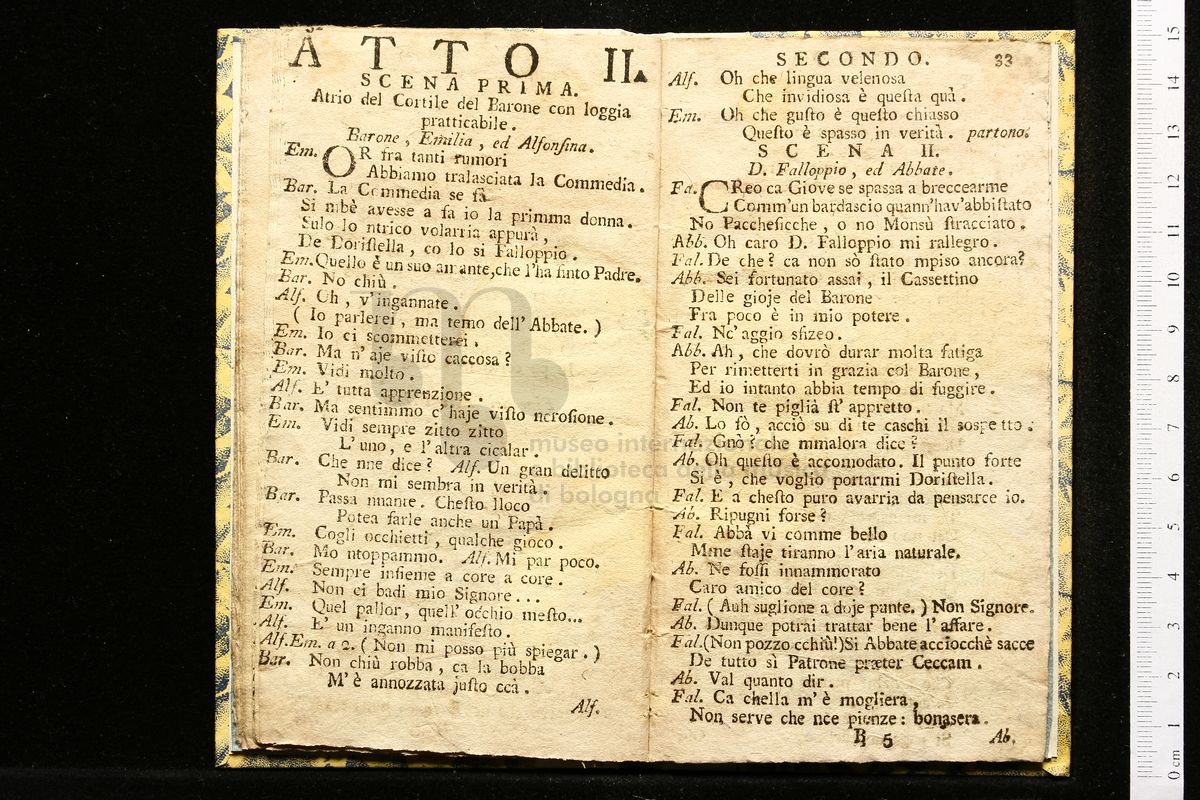 ATTO II.
SCENA PRIMA.
Atrio del Cortile del Barone con loggia
pratticabile.
Barone, Emilia, ed Alfonſina.
Em. OR fra tanti rumori
Abbiamo tralaſciata la Commedia.
Bar. La Commedia se fà
Si mbè aveſſe a fa io la primma donna.
Sulo lo ntrico volarria appurà,
De Doriſtella, co lo si Falloppio.
Em. Quello è un suo amante, che l'ha finto Padre.
Bar. No chiù.
Alf. Oh, v'ingannate.
( Io parlerei, ma temo dell' Abbate. )
Em. Io ci scommetterei.
Bar. Ma n' aje viſto caccosa?
Em. Vidi molto.
Alf. E' tutta apprenzione.
Bar. Ma sentimmo c' haje viſto ncroſione.
Em. Vidi sempre zitto zitto
L' uno, e l' altra cicalar.
Bar. Che nne dice? Alf. Un gran delitto
Non mi sembra in verità.
Bar. Paſſa nnante. Cheſto lloco
Potea farle anche un Papà.
Em. Cogli occhietti, qualche gioco.
Bar. Mo ntoppammo. Alf. Mi par poco.
Em. Sempre inſieme a core a core.
Alf. Non ci badi mio Signore...
Em. Quel pallor, quell' occhio meſto...
Alf. E' un inganno manifeſto.
Alf. Em. a 2. ( Non mi poſſo più spiegar. )
Bar. Non chiù robba, ca la bobba
M' è annozzata juſto ccà.
Alf.
SECONDO. 33
Alf. Oh che lingua velenosa
Che invidiosa è queſta quà.
Em. Oh che guſto è queſto chiaſſo
Queſto è spaſſo in verità. partono.
SCENA II.
D. Falloppio, ed Abbate.
Fa. CReo ca Giove se spaſſa a breccearme
Comm'un bardascio quann'hav'abbiſtato
No Paccheſicche, o no Monsù ſtracciato.
Abb. Oh caro D. Falloppio mi rallegro.
Fal. De che? ca non sò ſtato mpiso ancora?
Abb. Sei fortunato aſſai, il Caſſettino
Delle gioje del Barone
Fra poco è in mio potere.
Fal. Nc' aggio sfizeo.
Abb. Ah, che dovrò durar molta fatiga
Per rimetterti in grazia col Barone,
Ed io intanto abbia tempo di fuggire.
Fal. Non te piglià ſt' appretto.
Ab. Lo fò, acciò su di te caschi il sospetto.
Fal. Gnò? che mmalora dice?
Ab. Oh queſto è accomodato. Il punto forte
Si è, che voglio portarmi Doriſtella.
Fal. E a cheſto puro avarria da pensarce io.
Ab. Ripugni forse?
Fal. Abbà vi comme bello
Mme ſtaje tiranno l'aria naturale.
Ab. Ne foſſi innammorato
Caro amico del core?
Fal. ( Auh suglione a doje pante. ) Non Signore.
Ab. Dunque potrai trattar bene l' affare.
Fal. (Non pozzo cchiù!) Si Abbate acciocchè sacce
De tutto sì Patrone præter Ceccam.
Ab. Val quanto dir.
Fal. Ca chella m' è mogliera,
Non serve che nce pienze: bonasera.
B 5 Ab.
museo internazionale
e biblioteca della musica
di bologna
15
14
13
12
11
10
9
8
7
6
5
4
3
2
1
0 cm